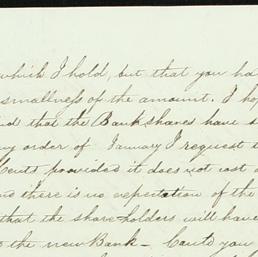 which I hold, but that you ha
smallness of the amount. I ho
d that the Bank shares have
y order of January I request
Couts provided it does not cost
there is no expectation of the
that the share holders will have
the new Bank - Couts you